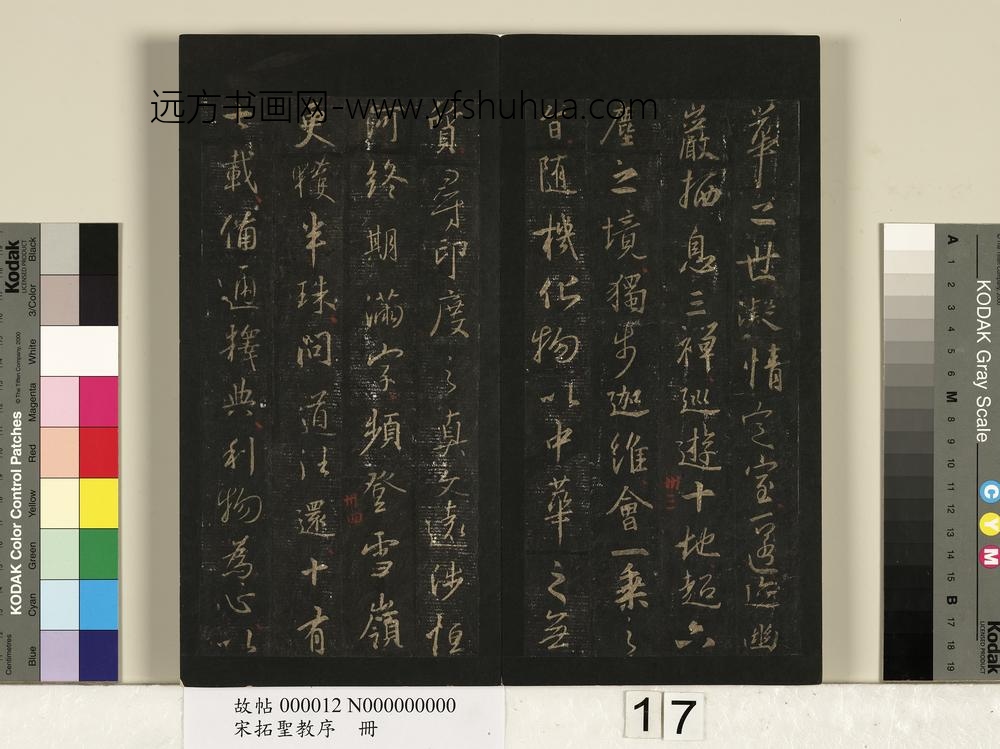 远方书画网-www.yfshuhua.com
華之世凝情定室匿迹幽
巖栖息三禪巡遊十地超六
塵之境獨步迦維會一乘之
旨随機化物以中華之無
質尋印度之真文遠涉恒
河終期滿字頻登雪嶺
更獲半珠問道法還十有
七載備通釋典利物為心以
卅三
卅四
故帖 000012 N000000000
宋拓聖教序 冊
17
Kodak
LICENSED PRODUCT
KODAK Color Control Patches
© The Tiffen Company, 2000
Centimetres
Blue Cyan Green Yellow Red Magenta White 3/Color Black
KODAK Gray Scale
A 1 2 3 4 5 6 M 8 9 10 11 12 13 14 15 B 17 18 19
C
Y
M
Kodak
LICENSED PRODUCT